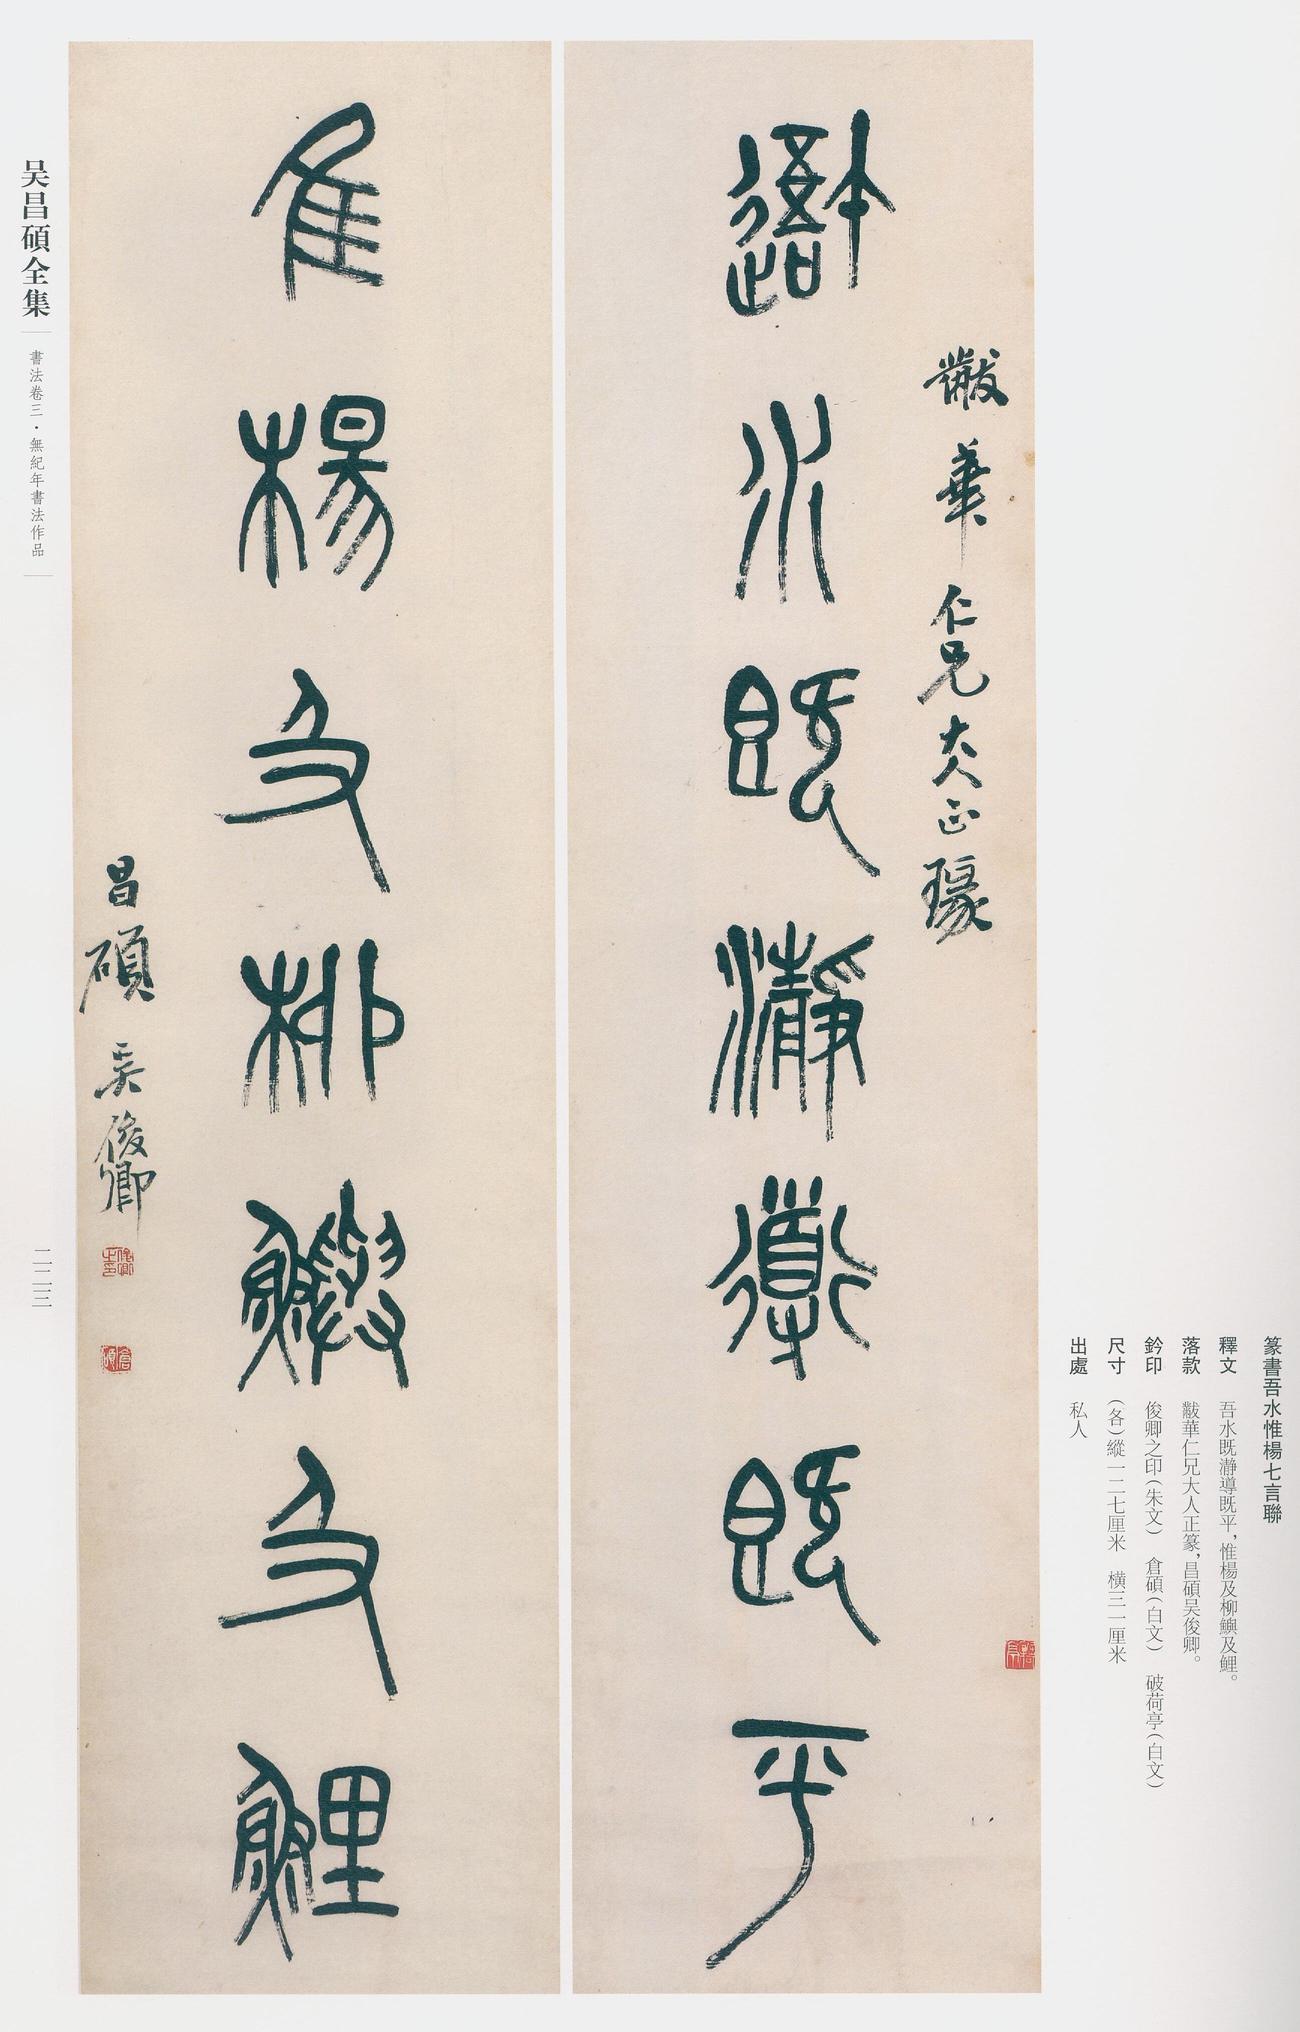 篆書吾水惟楊七言聯
釋文 吾水既瀞導既平，惟楊及柳鱮及鯉。
落款 黻華仁兄大人正篆，昌碩吴俊卿。
鈐印 俊卿之印（朱文） 倉碩（白文） 破荷亭（白文）
尺寸 （各）縱一二七厘米 橫三一厘米
出處 私人
黻華仁兄大人正瑑
避水既瀞導既平
隹楊及柳鱮及鯉
昌碩吴俊卿
俊卿之印
倉碩
破荷亭
吴昌碩全集
書法卷三·無紀年書法作品
二二三